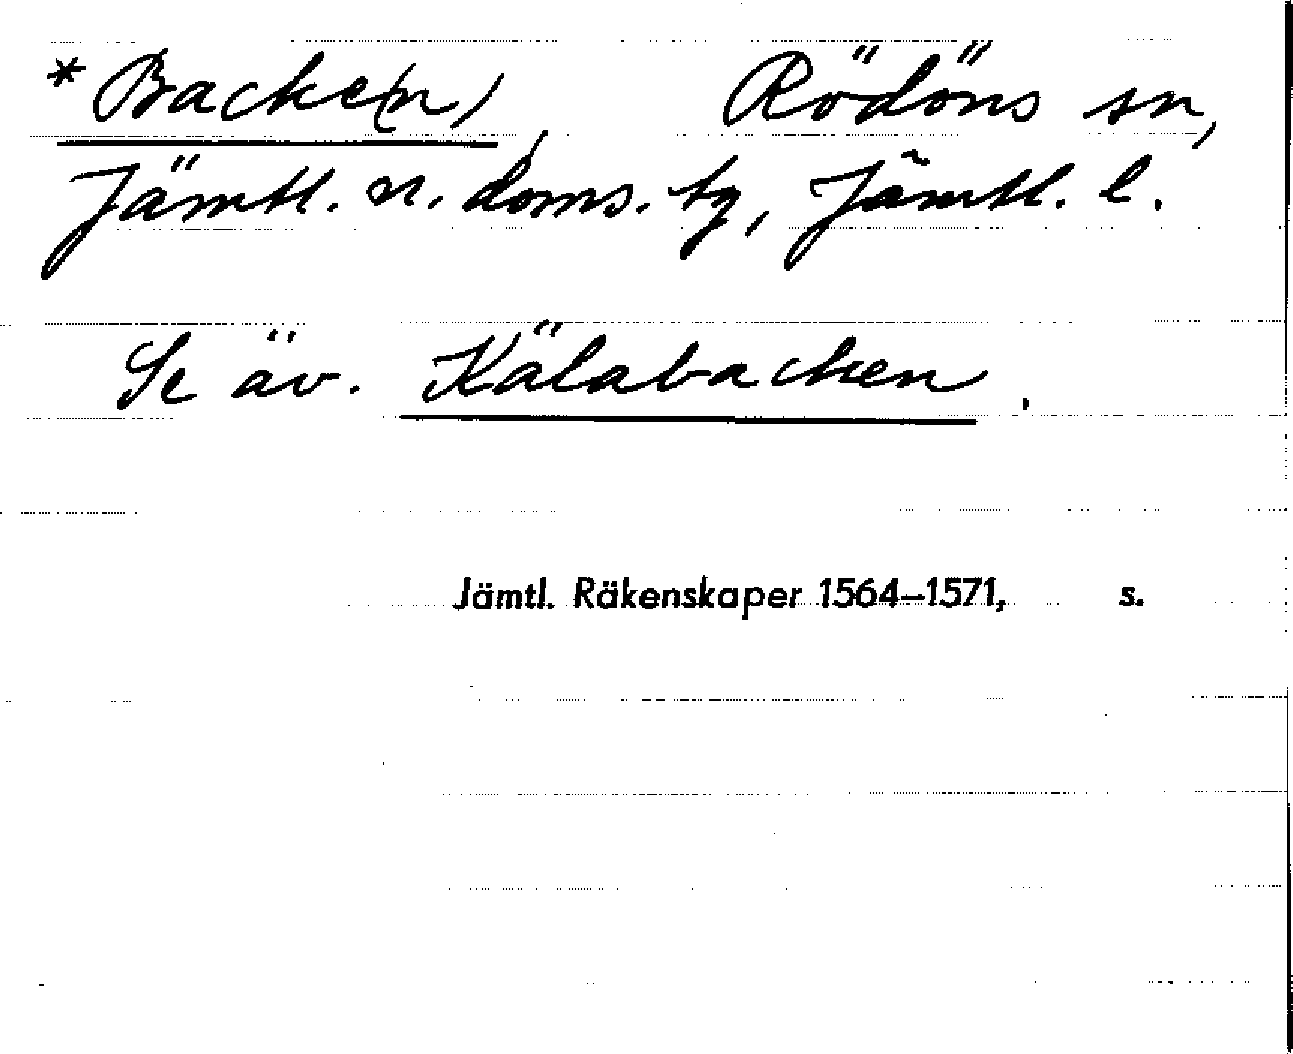 *Backe(n), Rödöns sn,
Jämtl. n. doms. tg, Jämtl. l.
Se äv. Kälabacken.
Jämtl. Räkenskaper 1564–1571, s.